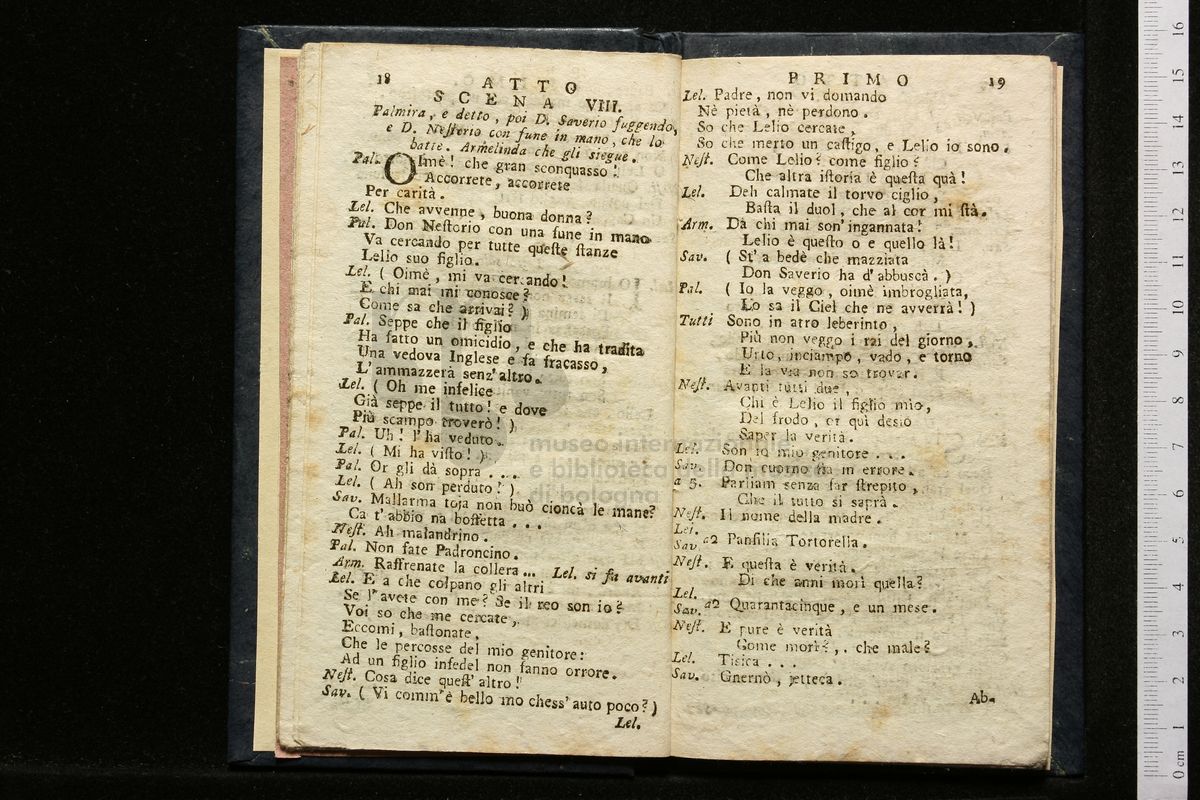 18 ATTO
SCENA VIII.
Palmira, e detto, poi D. Saverio fuggendo,
e D. Neſtorio con fune in mano, che lo
batte. Armelinda che gli siegue.
Pal. OImè! che gran sconquasso!
Accorrete, accorrete
Per carità.
Lel. Che avvenne, buona donna?
Pal. Don Neſtorio con una fune in mano
Va cercando per tutte queſte ſtanze
Lelio suo figlio.
Lel. ( Oimè, mi va cercando!
E chi mai mi conosce?
Come sa che arrivai? )
Pal. Seppe che il figlio
Ha fatto un omicidio, e che ha tradita
Una vedova Inglese e fa fracasso,
L'ammazzerà senz'altro.
Lel. ( Oh me infelice
Già seppe il tutto! e dove
Più scampo troverò! )
Pal. Uh! l'ha veduto.
Lel. ( Mi ha viſto! )
Pal. Or gli dà sopra ....
Lel. ( Ah son perduto! )
Sav. Mallarma toja non buò cioncà le mane?
Ca t'abbio na boffetta ...
Neſt. Ah malandrino.
Pal. Non fate Padroncino.
Arm. Raffrenate la collera ... Lel. si fa avanti
Lel. E a che colpano gli altri
Se l'avete con me? Se il reo son io?
Voi so che me cercate,
Eccomi, baſtonate,
Che le percosse del mio genitore:
Ad un figlio infedel non fanno orrore.
Neſt. Cosa dice queſt'altro!
Sav. ( Vi comm'è bello mo chess'auto poco? )
Lel.
PRIMO 19
Lel. Padre, non vi domando
Nè pietà, nè perdono.
So che Lelio cercate,
So che merto un caſtigo, e Lelio io sono.
Neſt. Come Lelio? come figlio?
Che altra iſtoria è queſta quà!
Lel. Deh calmate il torvo ciglio,
Baſta il duol, che al cor mi ſtà.
Arm. Da chi mai son'ingannata!
Lelio è queſto o e quello là!
Sav. ( St'a bedè che mazziata
Don Saverio ha d'abbuscà. )
Pal. ( Io la veggo, oimè imbrogliata,
Lo sa il Ciel che ne avverrà! )
Tutti Sono in atro leberinto,
Più non veggo i rai del giorno,
Urto, inciampo, vado, e torno
E la via non so trovar.
Neſt. Avanti tutti due,
Chi è Lelio il figlio mio,
Del frodo, or quì desio
Saper la verità.
Lel. Son io mio genitore ...
Sav. Don cuorno ſta in errore.
a 5. Parliam senza far ſtrepito,
Che il tutto si saprà.
Neſt. Il nome della madre.
Lel.
Sav. a2 Panfilia Tortorella.
Neſt. E queſta è verità.
Di che anni morì quella?
Lel.
Sav. a2 Quarantacinque, e un mese.
Neſt. E pure è verità
Come morì?,. che male?
Lel. Tisica ...
Sav. Gnernò, jetteca.
Ab-
museo internazionale
e biblioteca della musica
di bologna
16
15
14
13
12
11
10
9
8
7
6
5
4
3
2
1
0 cm